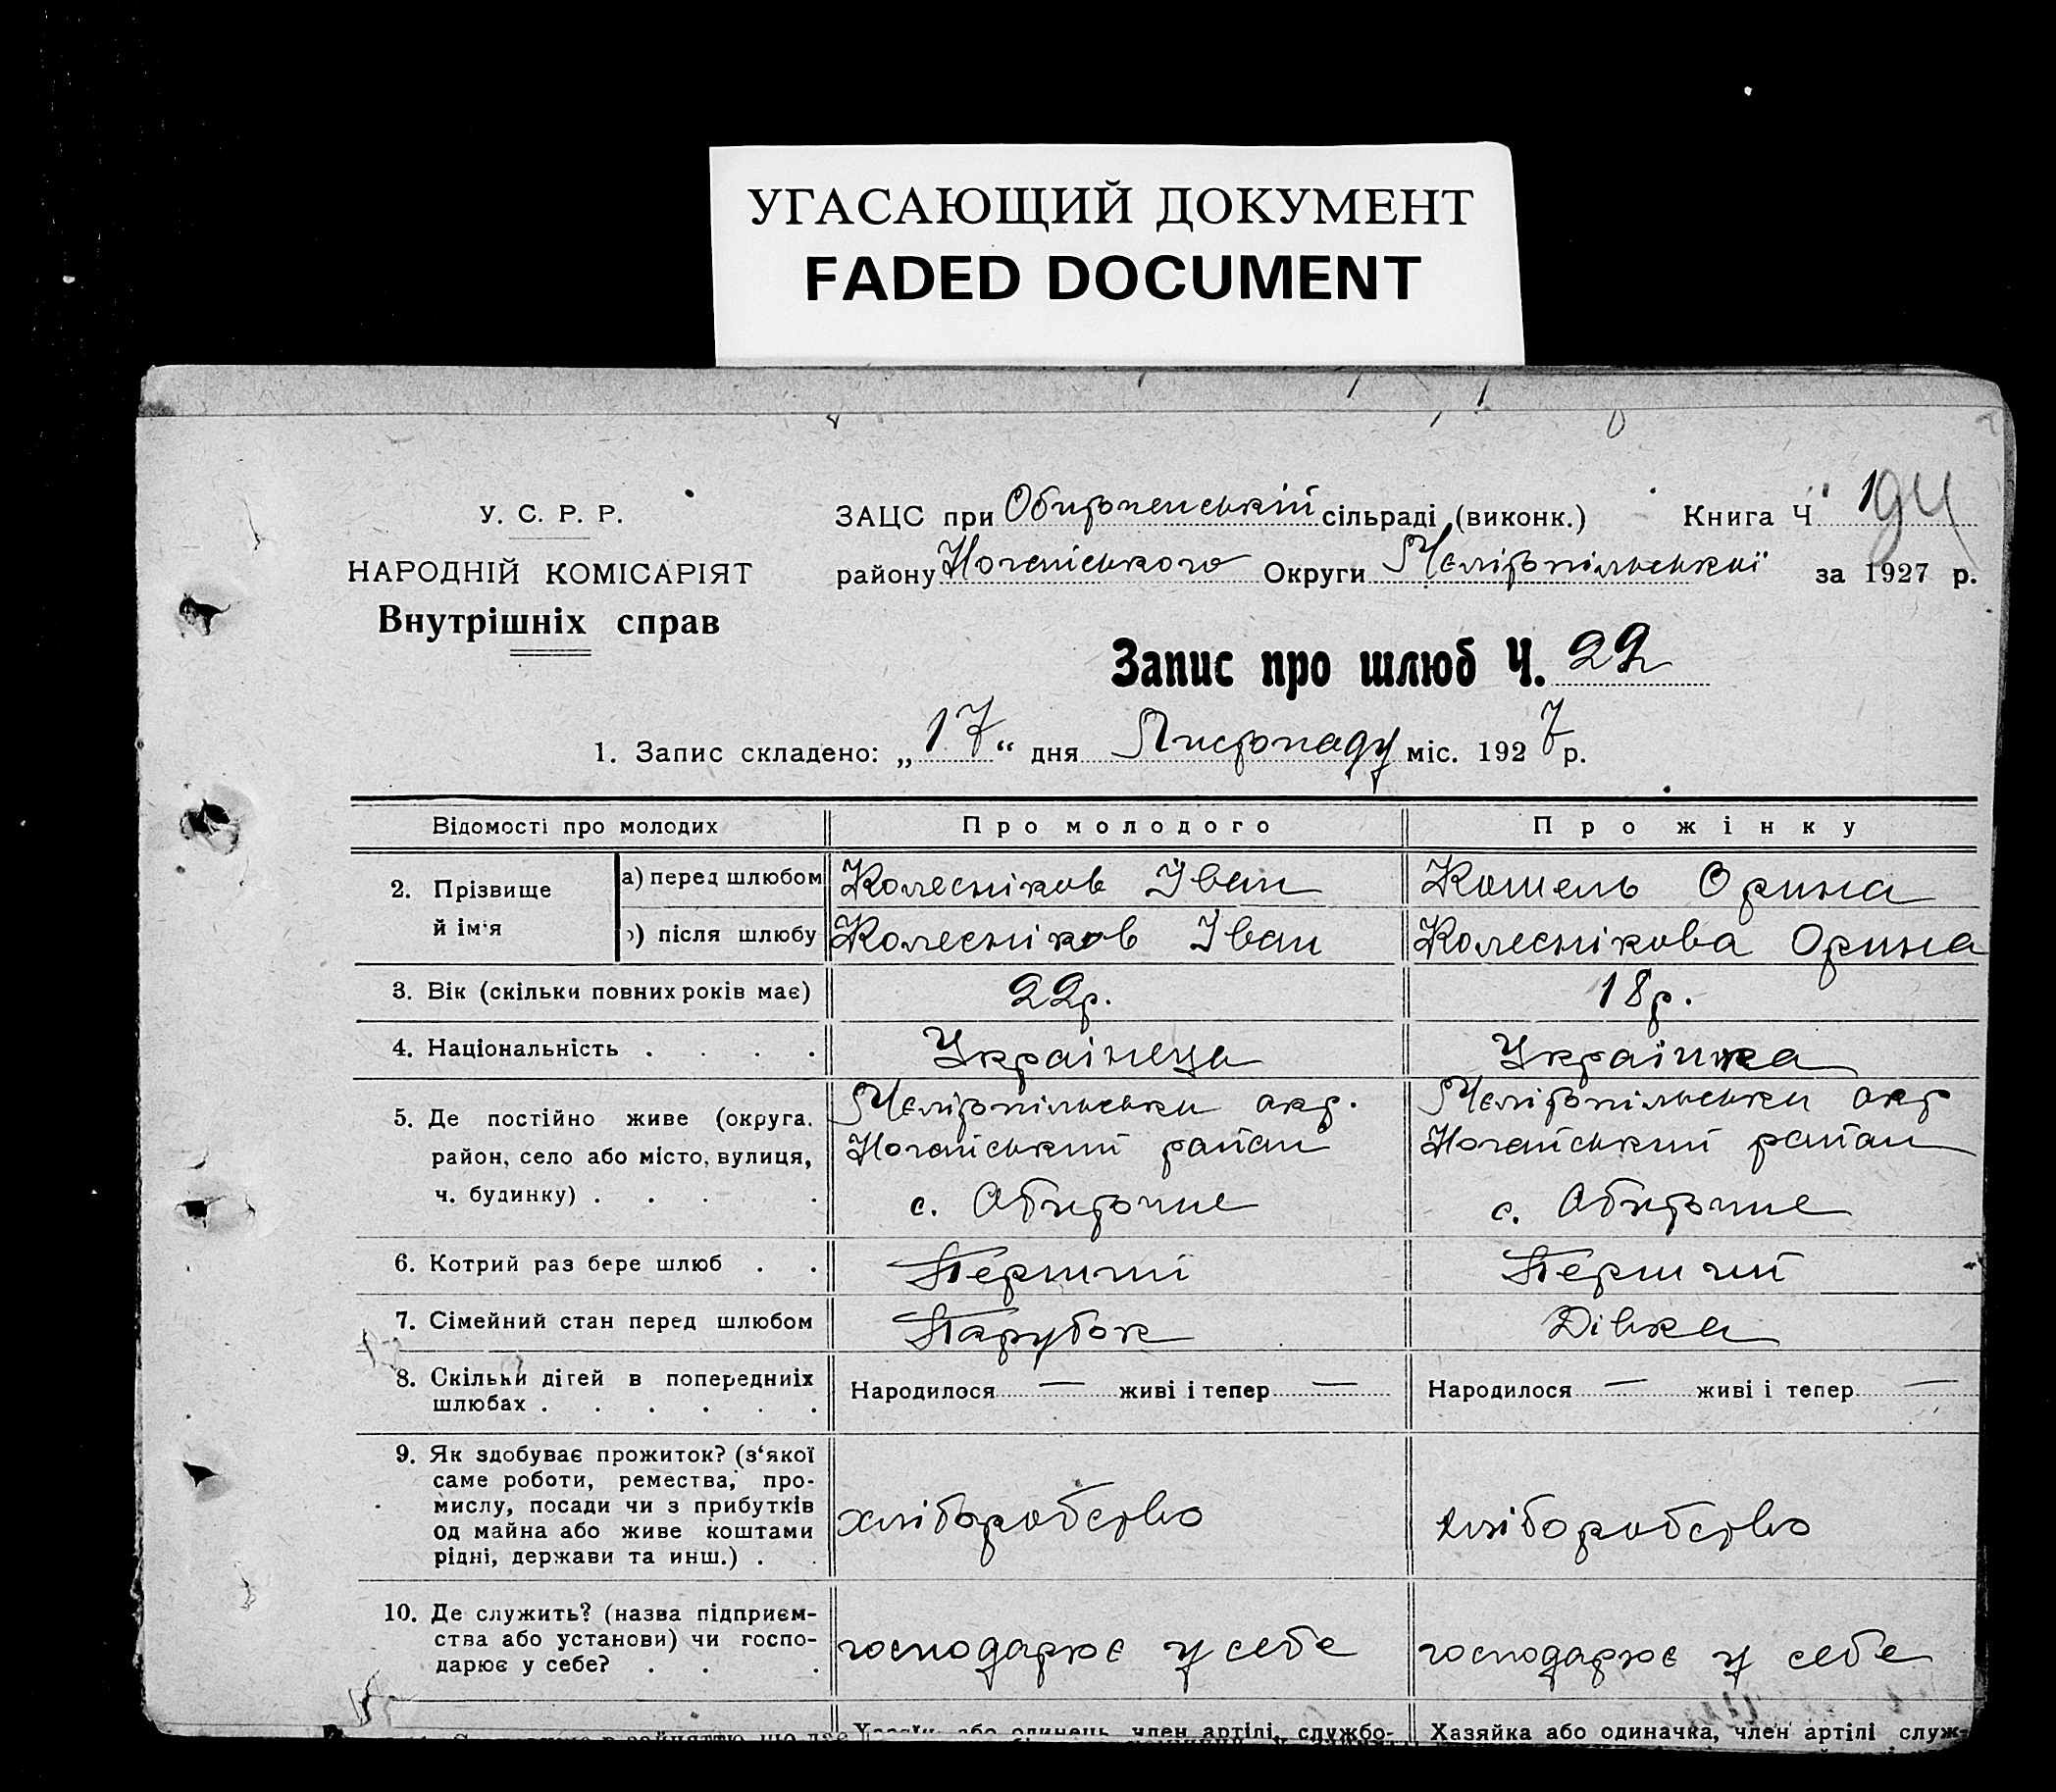 УГАСАЮЩИЙ ДОКУМЕНТ
FADED DOCUMENT
У. С. Р. Р.
НАРОДНІЙ КОМІСАРІЯТ
Внутрішніх справ
ЗАЦС при Обиточенській сільраді (виконк.) Книга Ч
району Ногайського Округи Мелітопільської за 1927 р.
Запис про шлюб Ч. 22
1. Запис складено: „17“ дня Листопаду міс. 1927 р.
Відомості про молодих Про молодого Про жінку
2. Прізвище й ім'я
а) перед шлюбом Колесніков Іван Кошель Орина
) після шлюбу Колесніков Іван Колеснікова Орина
3. Вік (скільки повних років має) 22р. 18р.
4. Національність . . . . Українець Українка
5. Де постійно живе (округа, район, село або місто, вулиця, ч. будинку) . . . .
Мелітопільськи окр. Мелітопільськи окр
Ногайський район Ногайський район
с. Обиточне с. Обиточне
6. Котрий раз бере шлюб . . Перший Перший
7. Сімейний стан перед шлюбом Парубок Дівка
8. Скільки дітей в попередниіх Народилося — живі і тепер — Народилося — живі і тепер —
шлюбах . . . . . .
9. Як здобуває прожиток? (з'якої
саме роботи, ремества, про-
мислу, посади чи з прибутків
од майна або живе коштами хліборобство хліборобство
рідні, держави та инш.) . .
10. Де служить? (назва підприєм-
ства або установи) чи госпо- господарює у себе господарює у себе
дарює у себе? . . .
або одинець, член артілі, службо- Хазяйка або одиначка, член артілі служ-